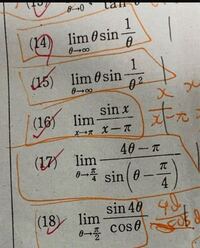 (14) lim θ→∞ θ sin 1/θ
(15) lim θ→∞ θ sin 1/θ²
(16) lim x→π sin x / x−π
(17) lim θ→π/4 4θ−π / sin(θ−π/4)
(18) lim θ→π/2 sin 4θ / cos θ